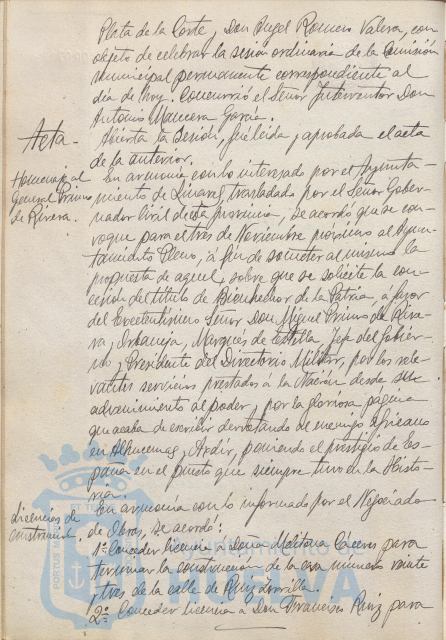 Plata de la Corte, Don Angel Romero Valera, con
objeto de celebrar la sesión ordinaria de la Comisión
Municipal permanente correspondiente al
día de hoy. Concurrió el Señor Interventor Don
Antonio Mancera García.
Acta.- Abierta la Sesión, fué leida y aprobada el acta
de la anterior.
Homenaje al En armonía con lo interesado por el Ayunta-
General Primo miento de Linares, trasladado por el Señor Gober-
de Rivera. nador Civil de esta provincia, se acordó que se con-
voque para el tres de Noviembre próximo al Ayun-
tamiento Pleno, a fin de someter al mismo la
propuesta de aquel, sobre que se solicite la con-
cesión del título de Bienhechor de la Patria, a favor
del Excelentísimo Señor Don Miguel Primo de Rive-
ra, y Orbaneja, Marqués de Estella, Jefe del Gobier-
no, y Presidente del Directorio Militar, por los rele-
vantes servicios prestados a la Nación desde su
advenimiento al poder, y por la gloriosa página
que acaba de escribir derrotando al enemigo africano
en Alhucemas y Axdir, poniendo el prestigio de Es-
paña en el puesto que siempre tuvo en la Histo-
ria.
licencias de En armonía con lo informado por el Negociado
de Obras, se acordó:
1º Conceder licencia a Cáceres para
terminar la construcción de la casa número veinte
y tres de la calle de
2º Conceder licencia a Don Francisco Ruiz para
Ayuntamiento de
HUELVA
PORTUS MARIS ET TERRAE